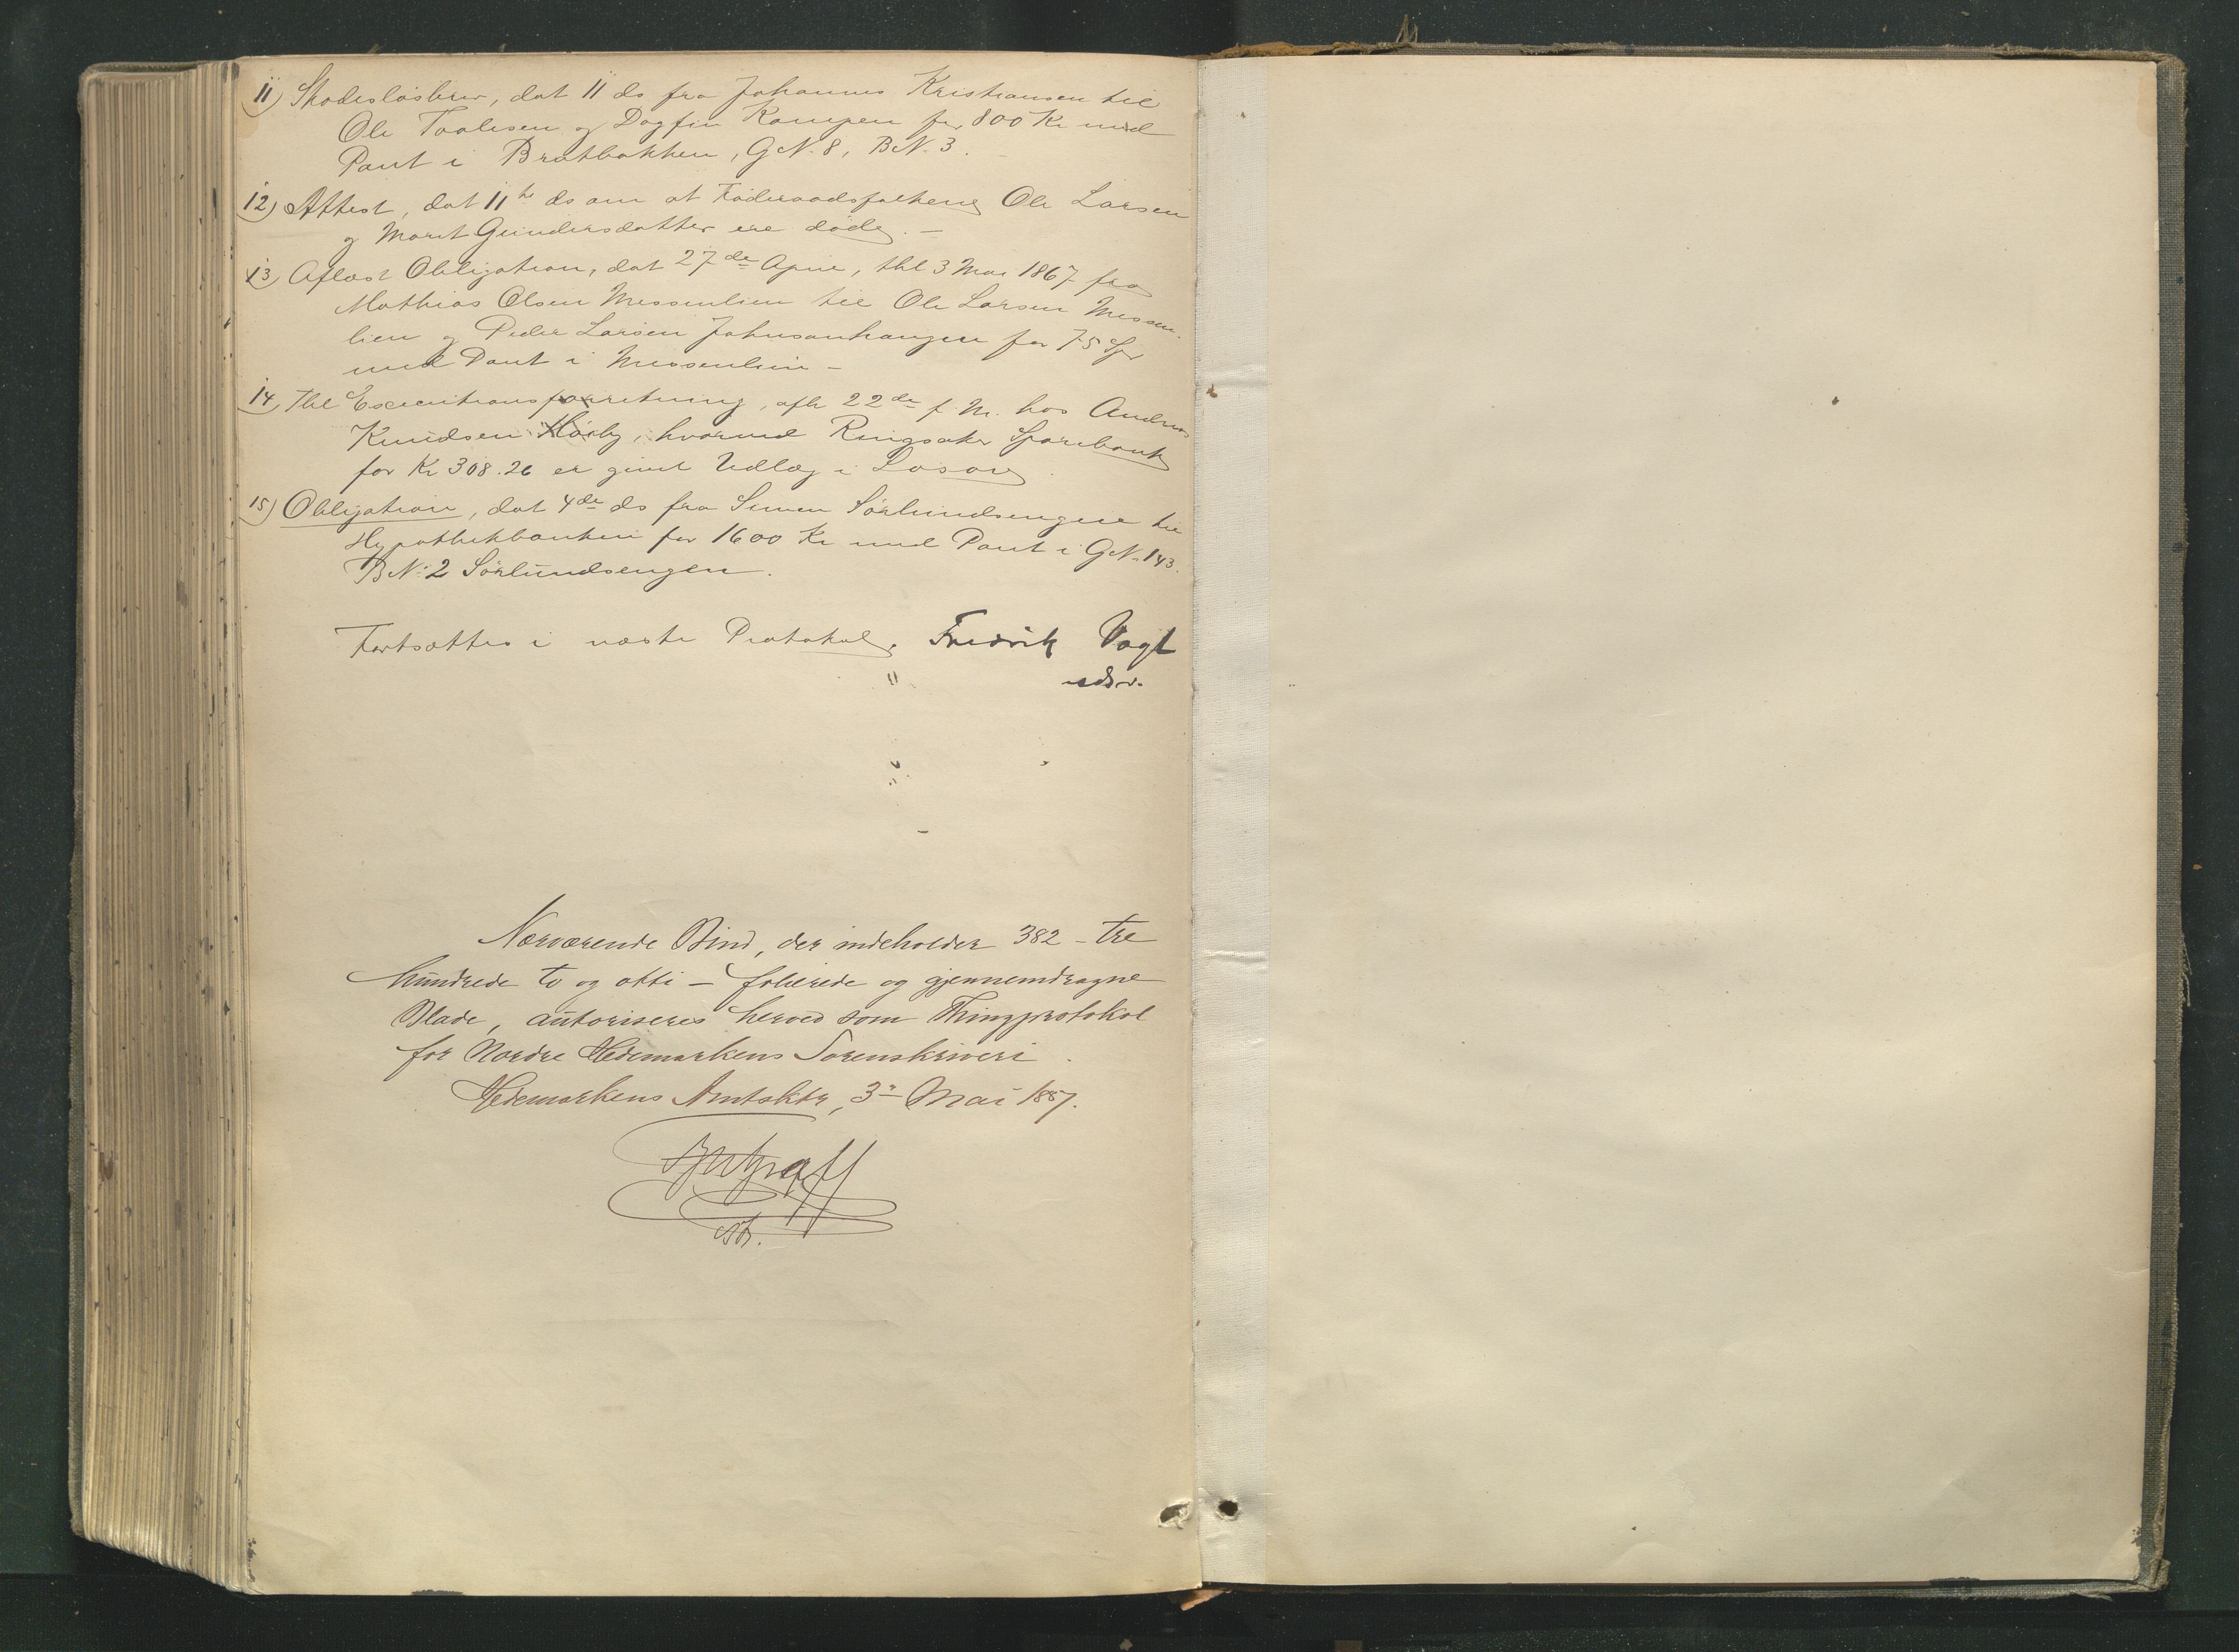 11) Skadesløsbrev, dat 11 ds fra Johannes Kristiansen til
Ole Taalesen og Dagfin Kampen for 800 Kr med
Pant i Bratbakken, G.N. 8, B.N. 3.
12) Attest, dat 11te ds om at Føderaadsfolkene Ole Larsen
og Marit Gundersdatter ere døde. –
13) Aflæst Obligation, dat 27de April, thl 3 Mai 1867 fra
Mathias Olsen Messenlien til Ole Larsen Messen-
lien og Peder Larsen Johnsanhaugen for 75 Spd
med Pant i Messenlien –
14) Thl Executionsforretning, afh 22de f. M. hos Andreas
Knudsen, hvorved Ringsaker Sparebank
for Kr 308.26 er givet Udlæg i Løsøre
15) Obligation, dat 4de ds fra Simen Sørlundsengen til
Hypothekbanken for 1600 Kr med Pant i G.N. 143.
B.N: 2 Sørlundsengen.
Fortsættes i næste Protokol. Fredrik Vogt
Nærværende Bind, der indeholder 382 – tre
hundrede to og otti – folierede og gjennemdragne
Blade, autoriseres herved som Thingprotokol
for Nordre Hedemarkens Sorenskriveri.
Hedemarkens Amtsktr, 3 Mai 1887.